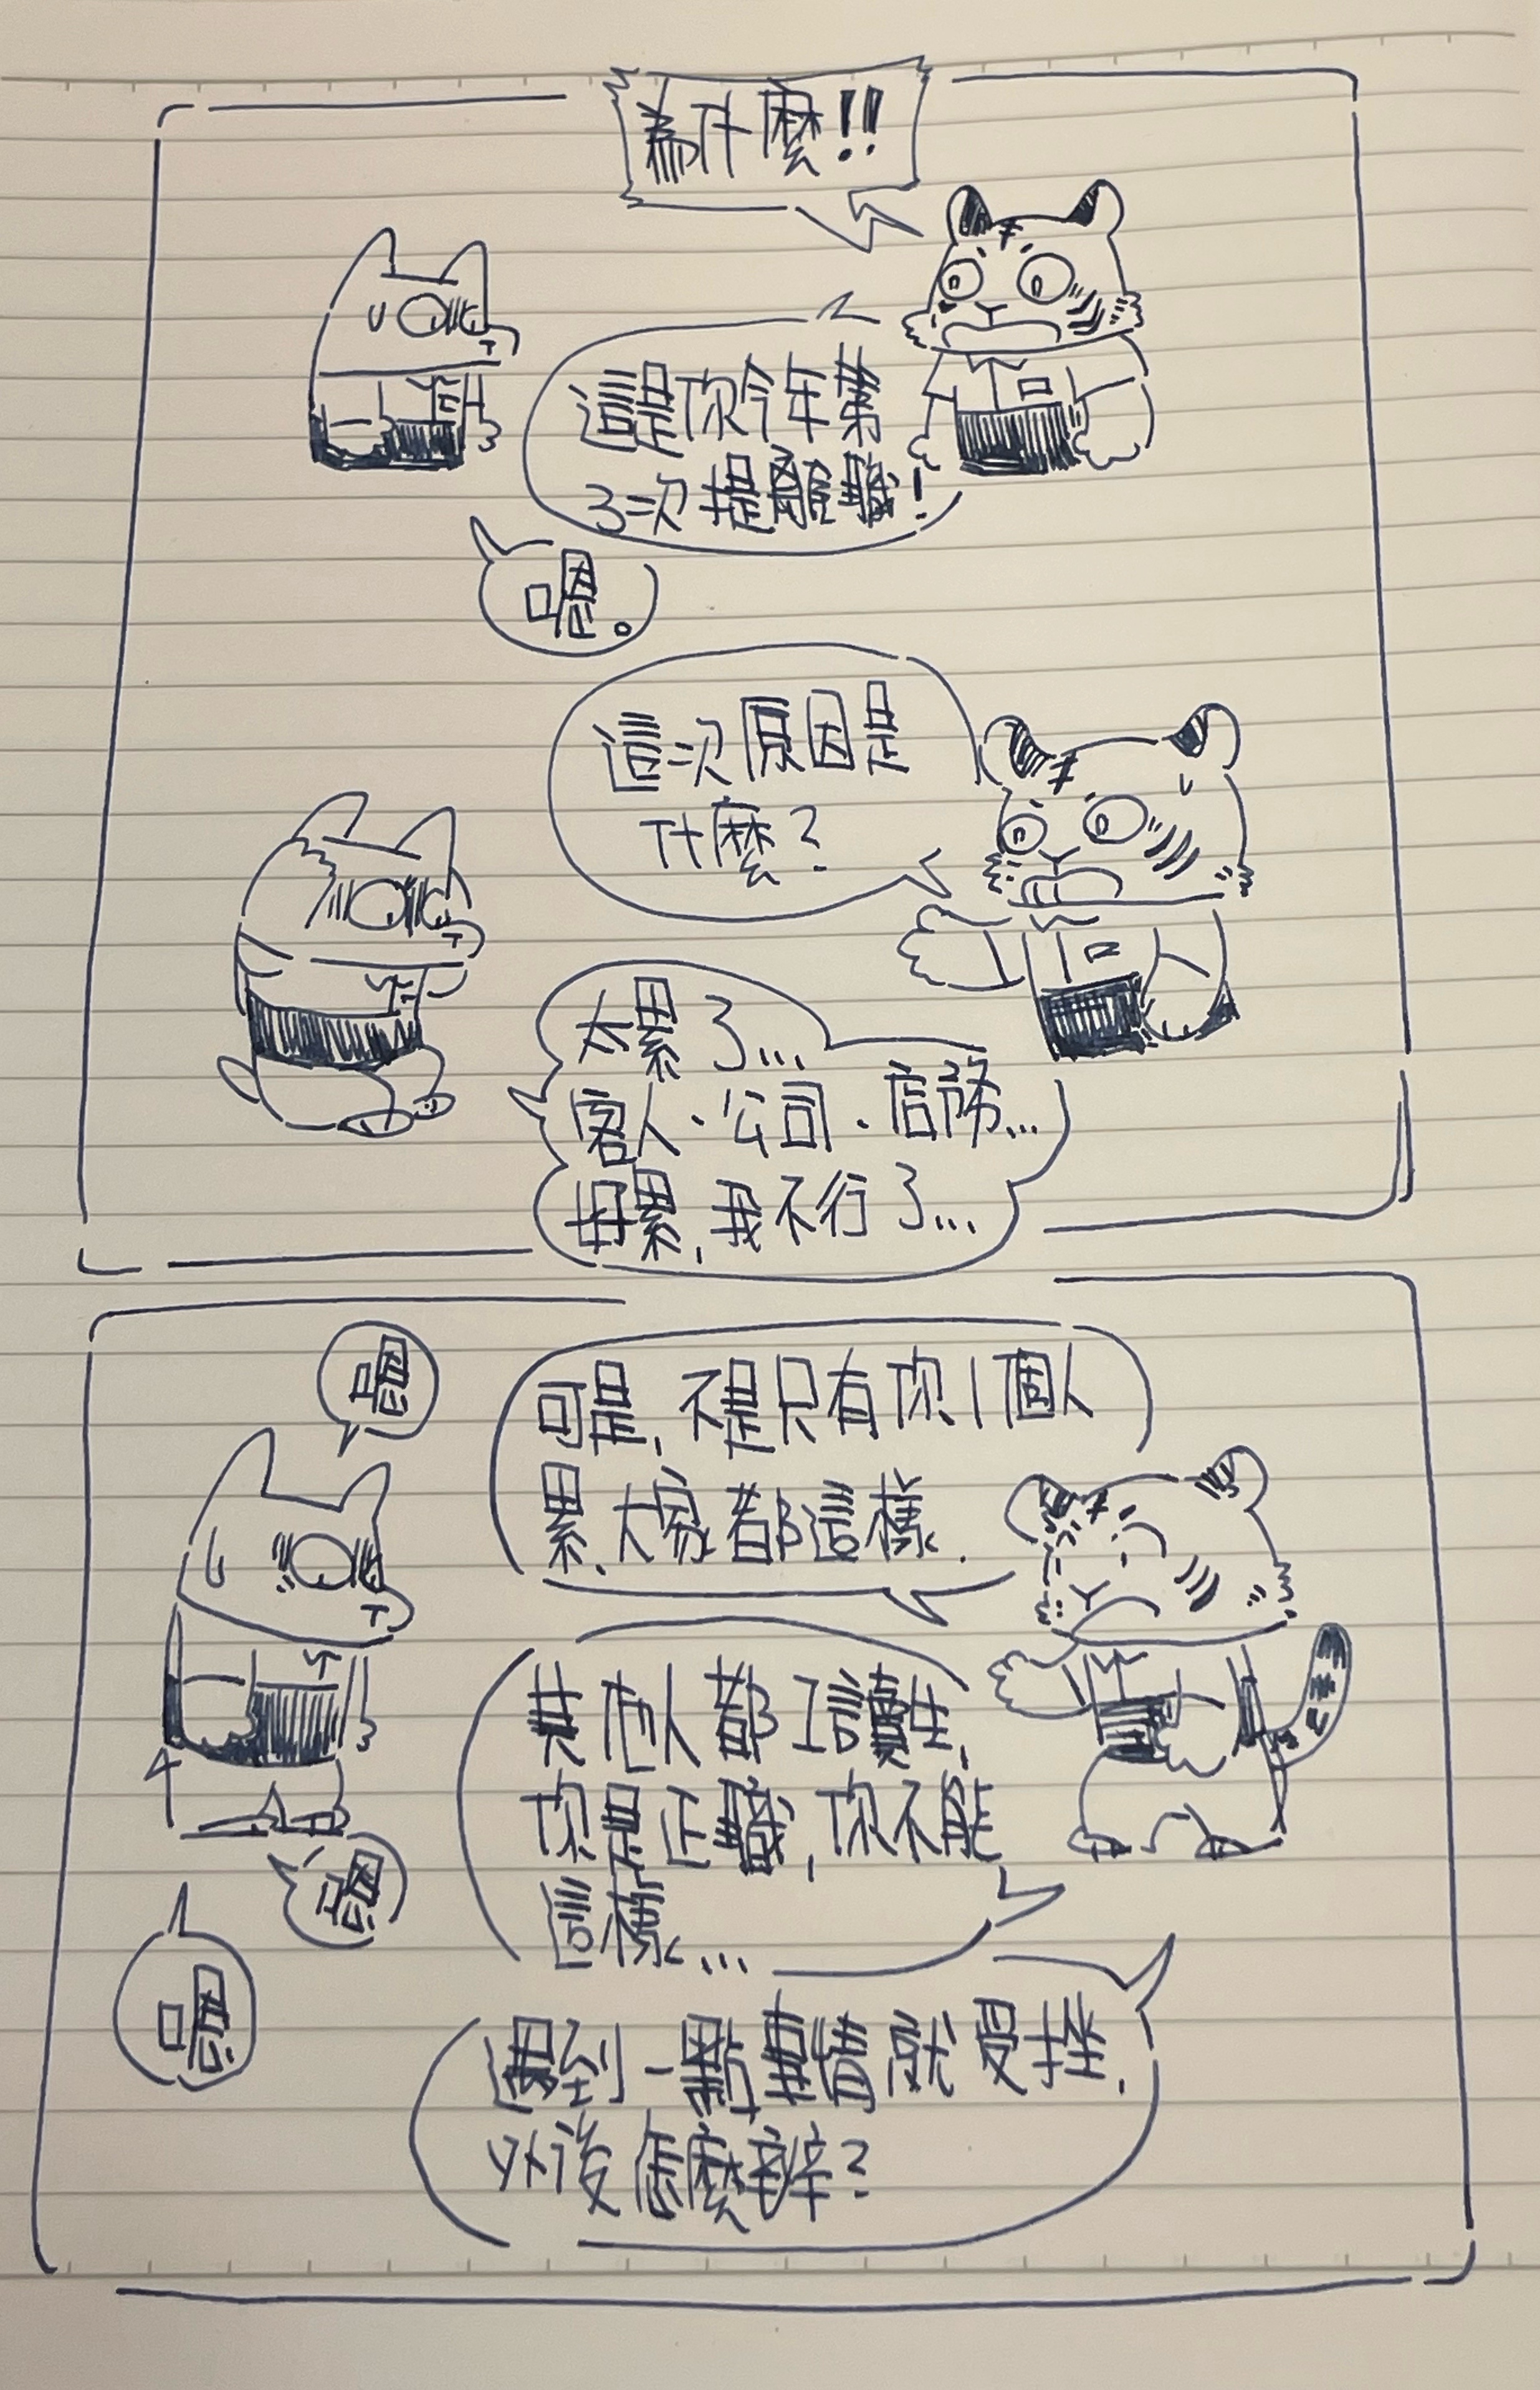 為什麼!!
這是你今年第
3次提離職!
嗯。
這次原因是
什麼?
太累了...
客人、公司、店務...
每累,我不行了...
嗯
可是,不是只有你1個人
累,大家都這樣.
其他人都工讀生,
你是正職,你不能
這樣...
嗯
嗯
遇到一點事情就受挫,
以後怎麼辦?